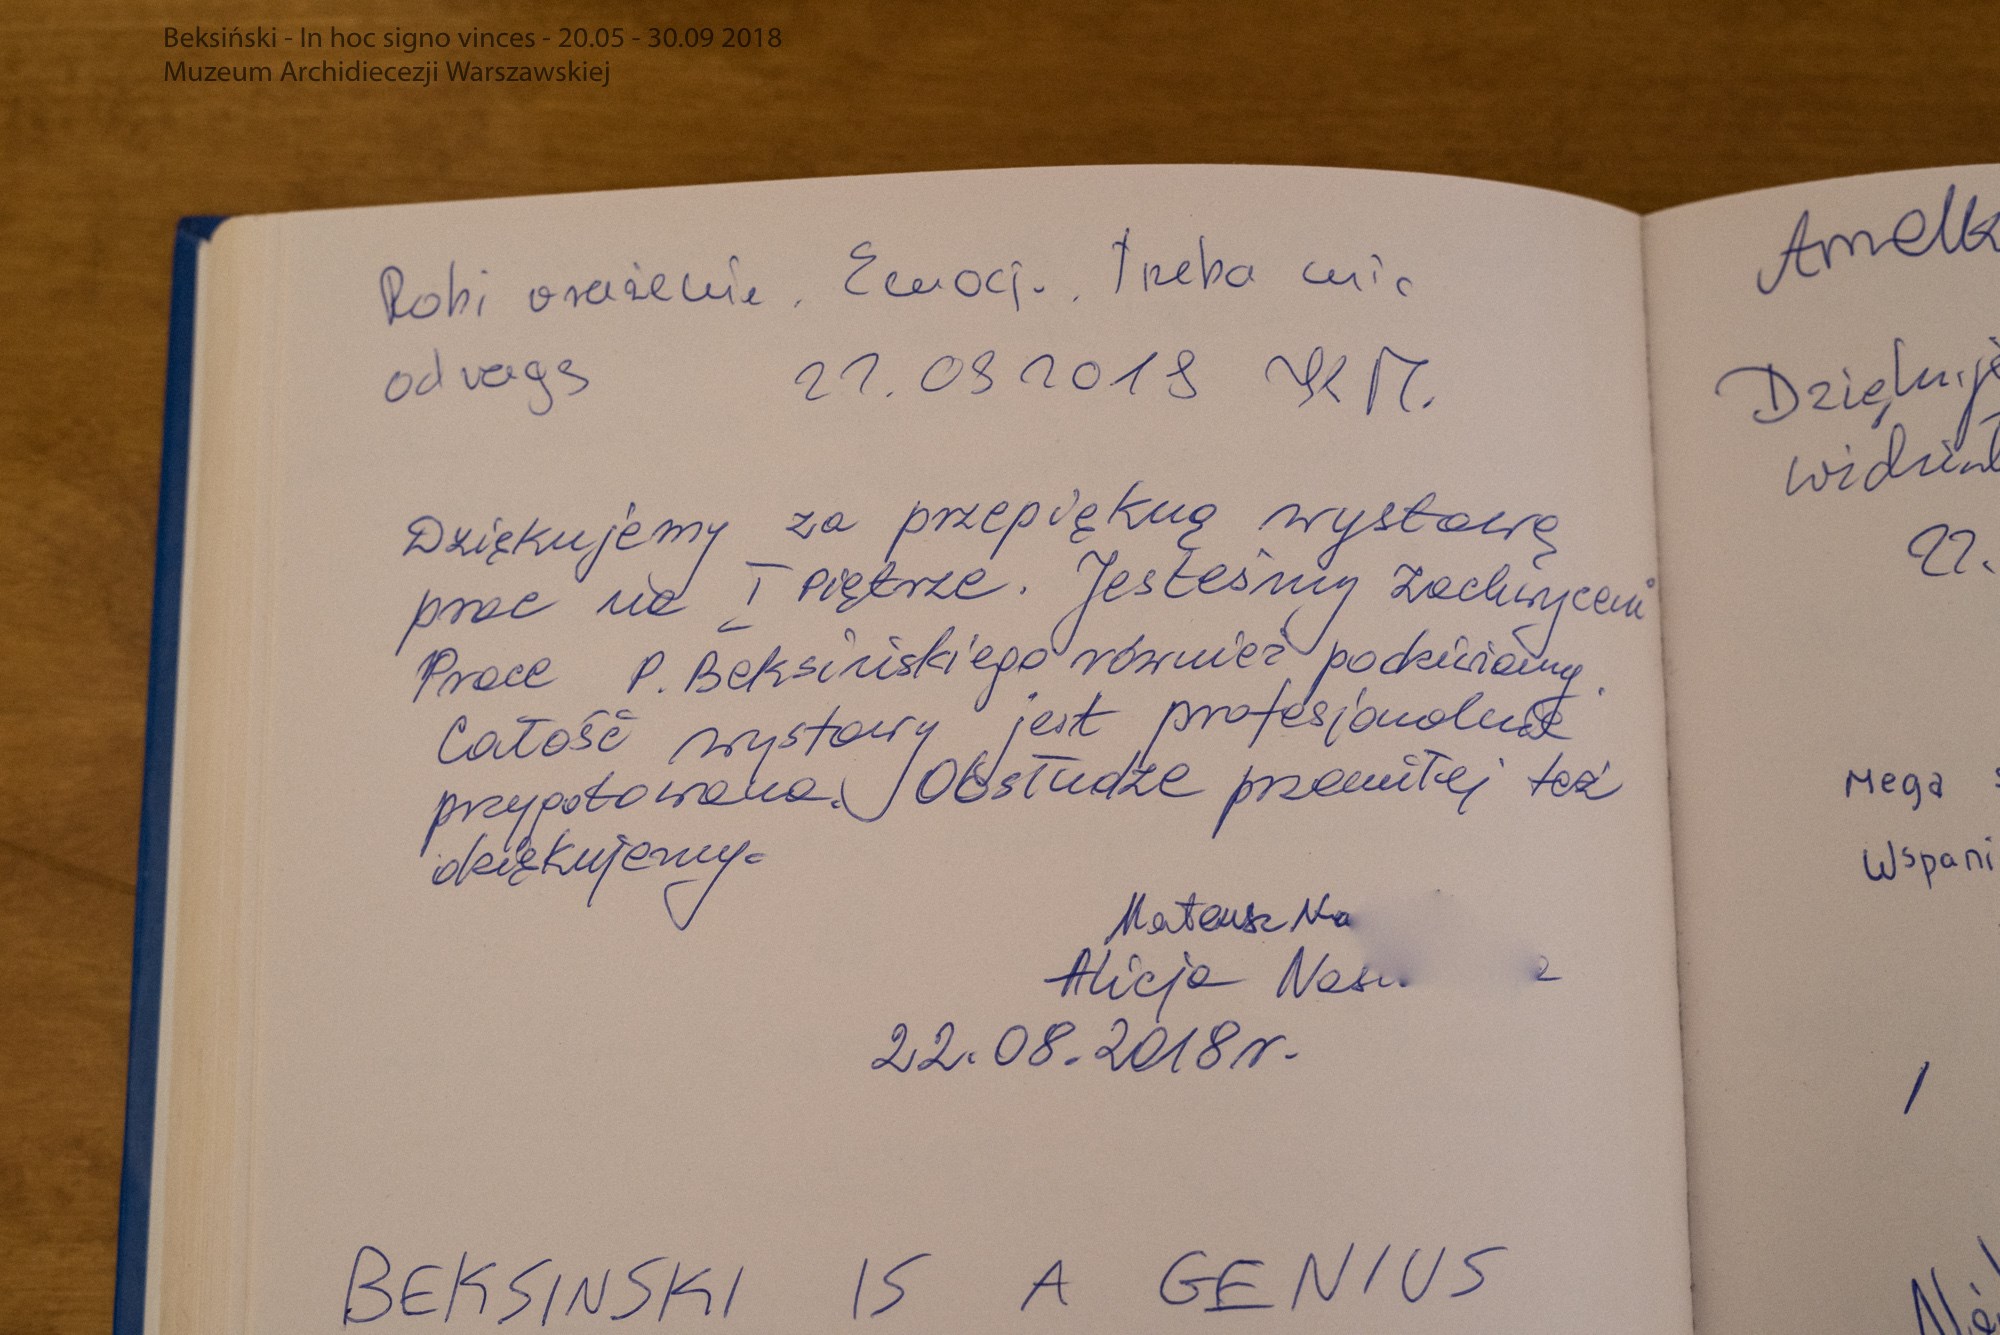 Beksiński - In hoc signo vinces - 20.05 - 30.09 2018
Muzeum Archidiecezji Warszawskiej
Robi wrażenie. Emocj. . Treba mic
odvags 22.08 2018 M.
Dziękujemy za przepiękną wystawę
prac na I piętrze. Jesteśmy zachwyceni
Prace P. Beksińskiego również podziwiamy.
Całość wystawy jest profesjonalnie
przygotowana. Obsłudze przemiłej też
dziękujemy.
Mateusz Na
Alicja
22.08.2018 r.
BEKSINSKI IS A GENIUS
Amelk
Dziękuję
widział
22.
Mega s
Wspani